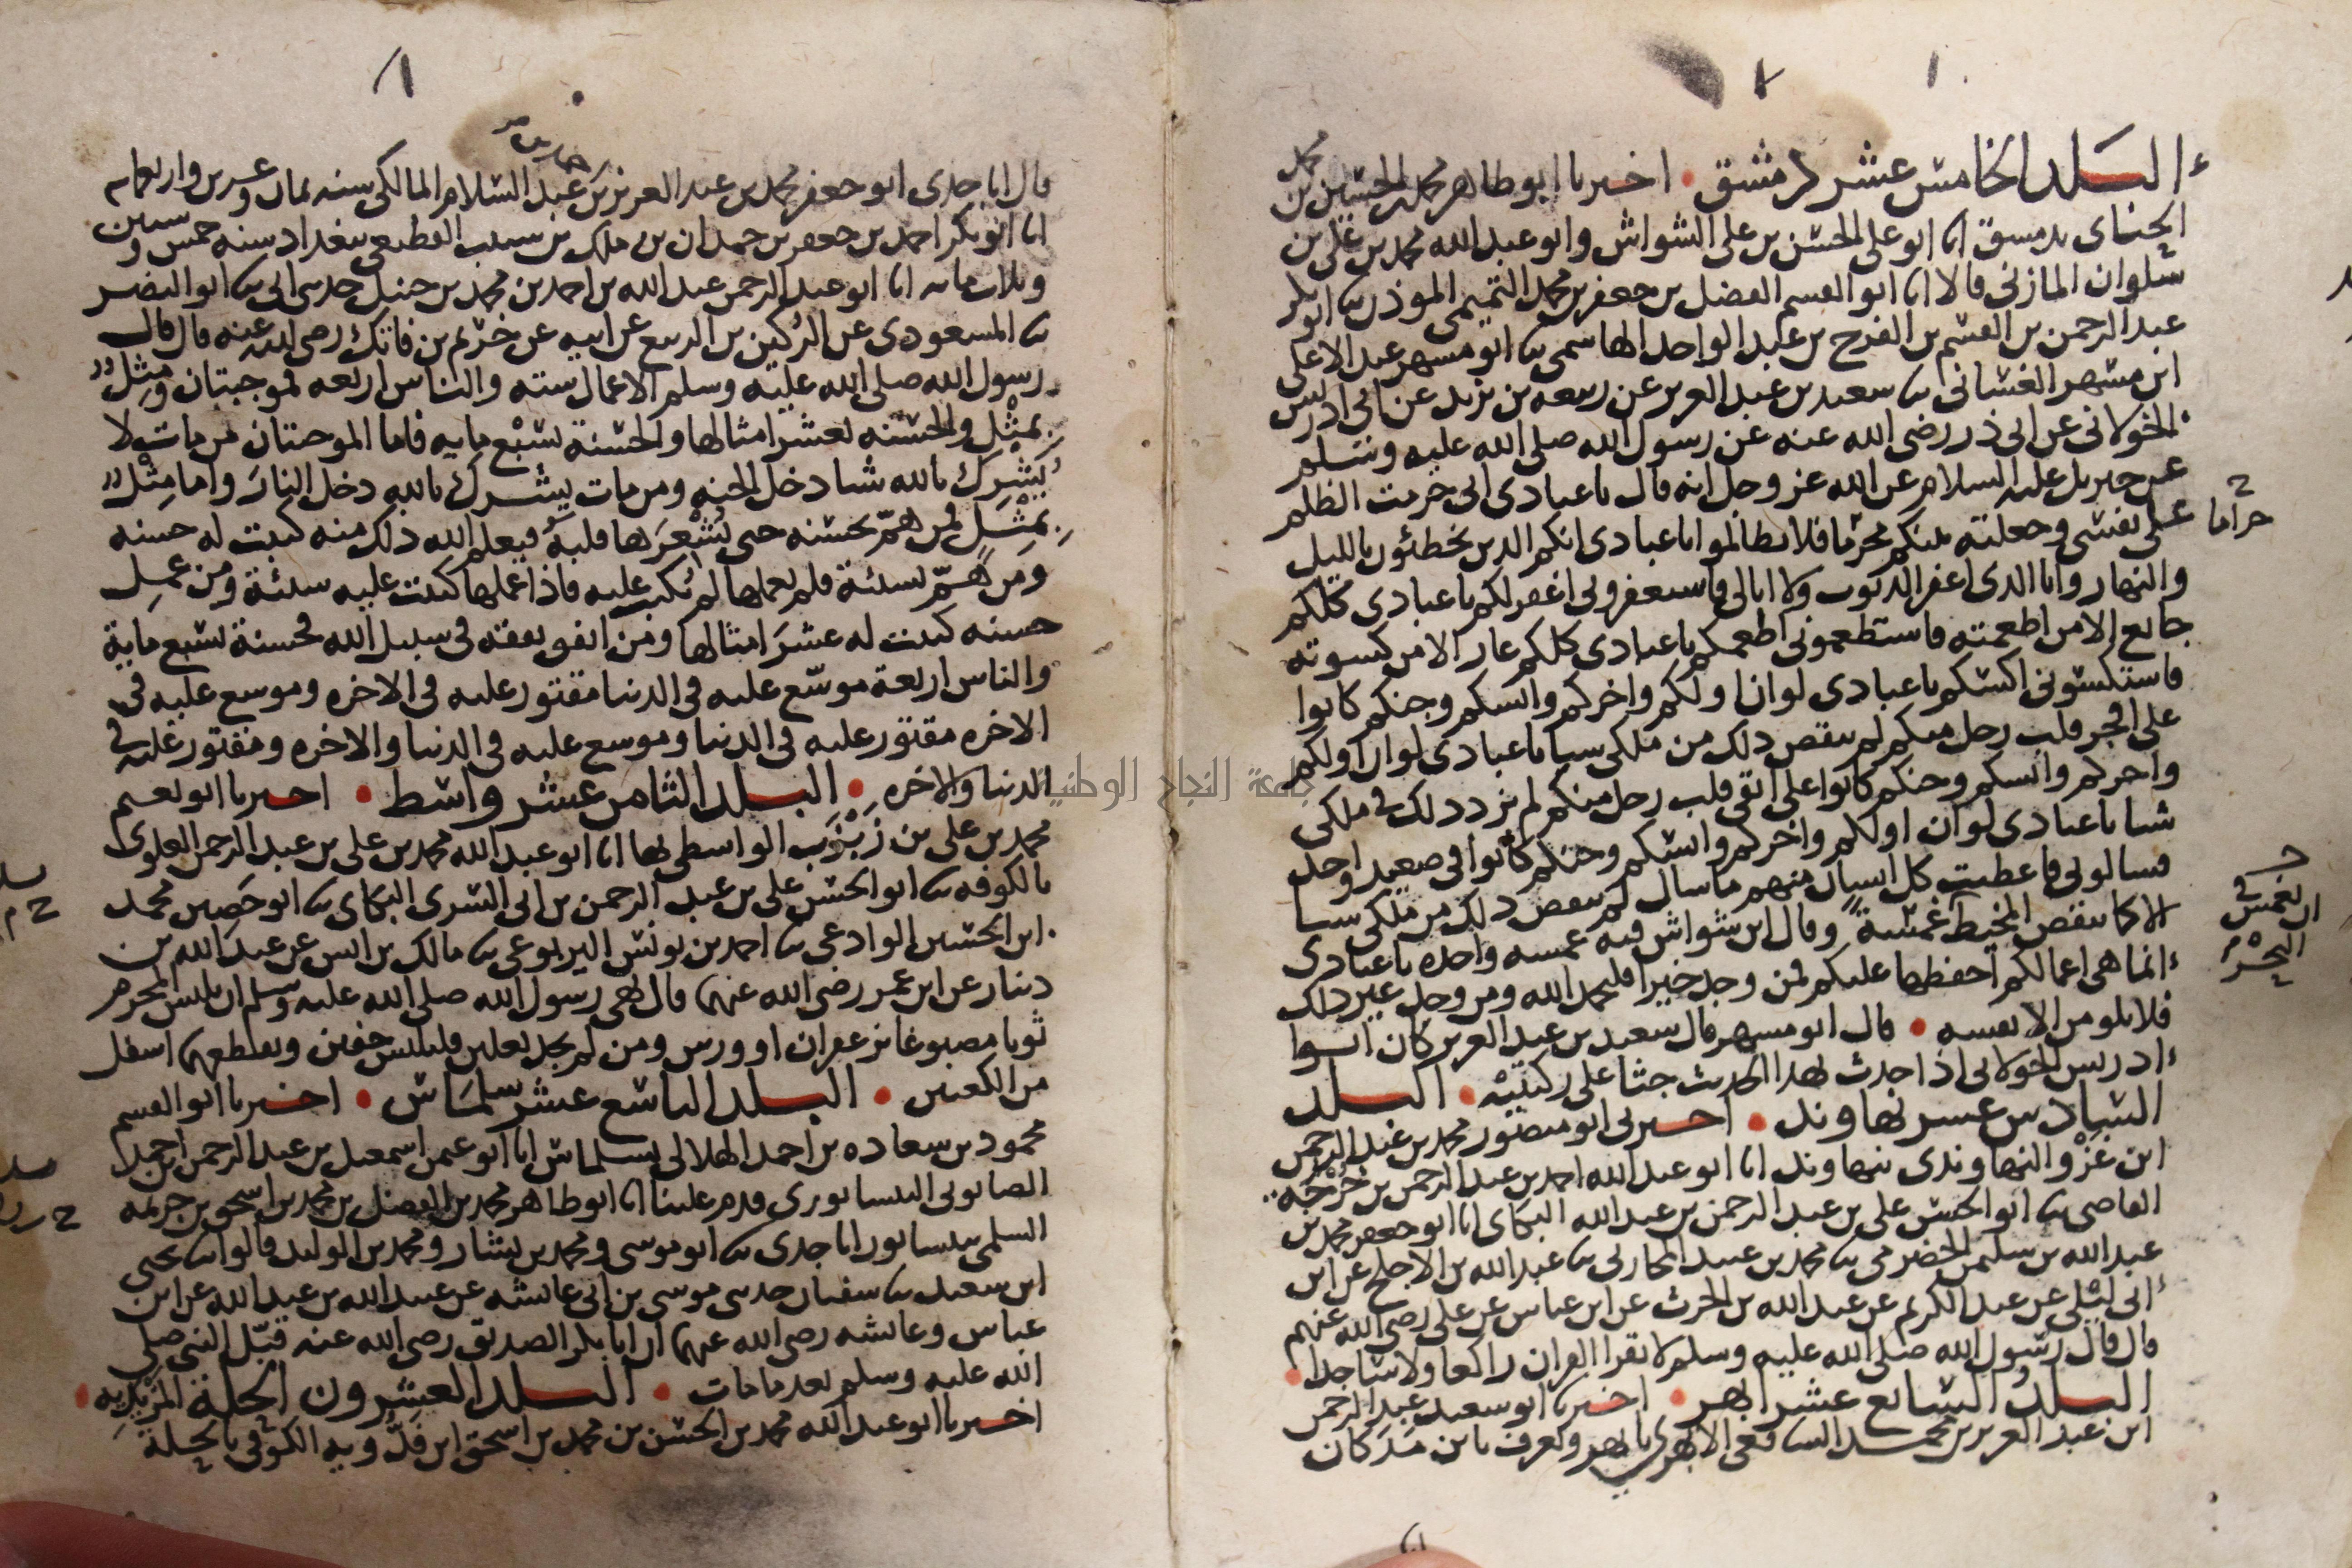 البلد الخامس عشر دمشق • اخبرنا ابو طاهر محمد بن الحسين بن محمد
الحنائى بدمشق انا ابو على الحسن بن على الشواش وابو عبد الله محمد بن على بن
سلوان المازنى قالا انا ابو القسم الفضل بن جعفر بن محمد التميمى الموذن نا ابو بكر
عبد الرحمن بن القسم بن الفرج بن عبد الواحد الهاشمى نا ابو مسهر عبد الاعلى
ابن مسهر الغسانى نا سعيد بن عبد العزيز عن ربيعه بن يزيد عن ابى ادريس
الخولانى عن ابى ذر رضى الله عنه عن رسول الله صلى الله عليه وسلم
عن جبريل عليه السلام عن الله عز وجل انه قال يا عبادى انى حرمت الظلم
على نفسى وجعلته بينكم محرما فلا تظالموا يا عبادى انكم الذين تخطئون بالليل
حراما
والنهار وانا الذى اغفر الذنوب ولا ابالى فاستغفرونى اغفر لكم يا عبادى كلكم
جائع الا من اطعمته فاستطعمونى اطعمكم يا عبادى كلكم عار الا من كسوته
فاستكسونى اكسكم يا عبادى لو ان اولكم واخركم وانسكم وجنكم كانوا
على افجر قلب رجل منكم لم ينقص ذلك من ملكى شيا يا عبادى لو ان اولكم
واخركم وانسكم وجنكم كانوا على اتقى قلب رجل منكم لم يزد ذلك فى ملكى
شيا يا عبادى لو ان اولكم واخركم وانسكم وجنكم كانوا فى صعيد واحد
فسالونى فاعطيت كل انسان منهم ما سال لم ينقص ذلك من ملكى شيا
الا كما ينقص المخيط غمسة وقال ابن شواش فيه غمسه واحده يا عبادى
ان يغمس فى
البحر
انما هى اعمالكم احفظها عليكم فمن وجد خيرا فليحمد الله ومن وجد غير ذلك
فلا يلومن الا نفسه • قال ابو مسهر قال سعيد بن عبد العزيز كان ابوا
ادريس الخولانى اذا حدث بهذا الحديث جثا على ركبتيه • البلد
السادس عشر نهاوند • اخبرنى ابو منصور محمد بن عبد الرحمن
ابن غزو النهاوندى بنهاوند انا ابو عبد الله احمد بن عبد الرحمن بن خرجه
القاضى نا ابو الحسن على بن عبد الرحمن بن عبد الله البكاى انا ابو جعفر محمد بن
عبد الله بن سليمن الحضرمى نا محمد بن عبيد المحاربى نا عبد الله بن الاجلح عن ابن
ابى ليلى عن عبد الكريم عن عبد الله بن الحرث عن ابن عباس عن على رضى الله عنهم
قال قال رسول الله صلى الله عليه وسلم لا تقرا القران راكعا ولا ساجدا •
البلد السابع عشر ابهر • اخبرنا ابو سعيد عبد الرحمن
ابن عبد العزيز بن محمد الشافعى الابهرى بابهر ويعرف بابن مدكان
قال انا جدى ابو جعفر محمد بن عبد العزيز بن عبد السلام المالكى سنه ثمان وعشرين واربعمايه
انا ابو بكر احمد بن جعفر بن حمدان بن ملك بن شبيب القطيعى ببغداد سنه خمس وستين
وثلاث مايه انا ابو عبد الرحمن عبد الله بن احمد بن محمد بن حنبل حدثنى ابى نا ابو النضر
نا المسعودى عن الركين بن الربيع عن ابيه عن خريم بن فاتك رضى الله عنه قال قال
رسول الله صلى الله عليه وسلم الاعمال سته والناس اربعه فموجبتان ومثل
بمثل والحسنه بعشر امثالها والحسنة بسبع مايه فاما الموجبتان من مات لا
يشرك بالله شيا دخل الجنه ومن مات يشرك بالله دخل النار واما مثل
بمثل فمن هم بحسنه حتى يشعرها قلبه فيعلم الله ذلك منه كتبت له حسنه
ومن هم بسئة فلم يعملها لم تكتب عليه فاذا عملها كتبت عليه سئة ومن عمل
حسنه كتبت له عشر امثالها ومن انفق نفقه فى سبيل الله فحسنة بسبع ماية
والناس اربعة موسع عليه فى الدنيا مقتور عليه فى الاخره وموسع عليه فى
الاخره مقتور عليه فى الدنيا وموسع عليه فى الدنيا والاخره ومقتور عليه فى
الدنيا والاخره • البلد الثامن عشر واسط • اخبرنا ابو نعيم
جامعة النجاح الوطنية
محمد بن على بن زبزب الواسطى بها انا ابو عبد الله محمد بن على بن عبد الرحمن العلوى
بالكوفه نا ابو الحسن على بن عبد الرحمن بن ابى السرى البكاى نا ابو حصين محمد
ابن الحسين الوادعى نا احمد بن يونس اليربوعى نا مالك بن انس عن عبد الله بن
دينار عن ابن عمر رضى الله عنهما قال نهى رسول الله صلى الله عليه وسلم ان يلبس المحرم
ثوبا مصبوغا بزعفران او ورس ومن لم يجد نعلين فليلبس خفين ويقطعهما اسفل
من الكعبين • البلد التاسع عشر سلماس • اخبرنا ابو القسم
محمود بن سعاده بن احمد الهلالى بسلماس انا ابو عثمن اسمعيل بن عبد الرحمن بن احمد
الصابونى النيسابورى قدم علينا انا ابو طاهر محمد بن الفضل بن محمد بن اسحق بن خزيمه
السلمى بنيسابور انا جدى نا ابو موسى ومحمد بن بشار ومحمد بن الوليد قالوا نا يحيى
ابن سعيد نا سفيان حدثنى موسى بن ابى عائشه عن عبيد الله بن عبد الله عن ابن
عباس وعائشه رضى الله عنهما ان ابا بكر الصديق رضى الله عنه قبل النبى صلى
الله عليه وسلم بعد ما مات • البلد العشرون الحلة المزيديه •
اخبرنا ابو عبد الله محمد بن الحسن بن محمد بن اسحق ابن فدويه الكوفى بالحلة